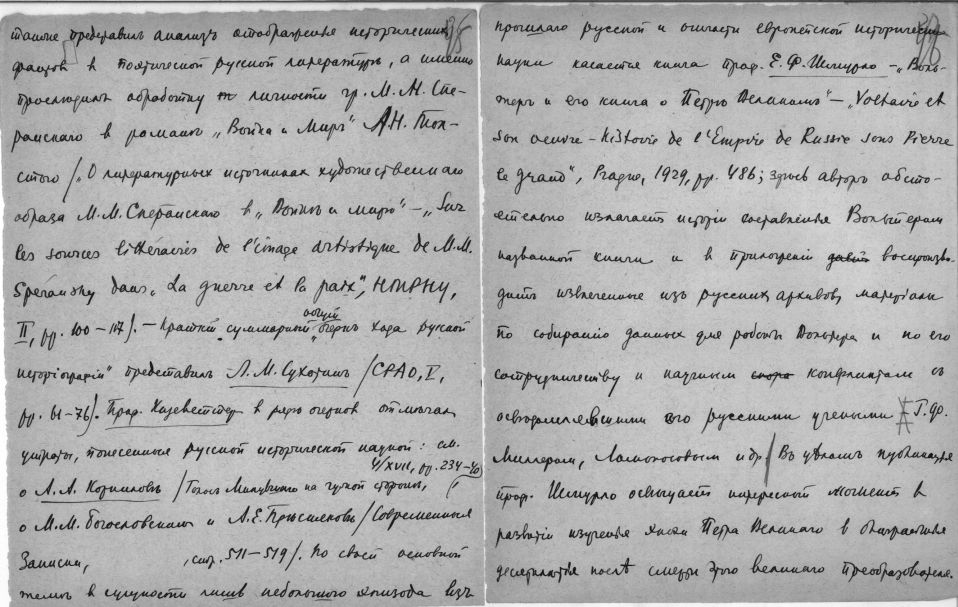 также представилъ анализъ отображенія историческихъ
фактовъ в поэтической русской литературѣ, а именно
прослѣдилъ обработку личности гр. М. М. Спе-
ранскаго в романѣ „Война и Миръ" Л.Н. Тол-
стого /„О литературных источниках художественнаго
образа М.М. Сперанскаго в „Войнѣ и мирѣ" – „Sur
les sources littéraires de l'image artistique de M.M.
Speransky dans „La guerre et la paix", НИРНУ,
II, pp. 100–117/. – Краткій суммарный общій „очерк хода русской
исторіографіи" представилъ Л.М. Сухотинъ /СРАО, V,
pp. 61–76/. Проф. Кизеветтер в ряде очерков отмечал
утраты, понесенные русской исторической наукой: см.
о А.А. Корниловѣ /Голос Минувшаго на чужой сторонѣ, 4/XVII, pp. 234–40/
о М.М. Богословском и А.Е. Прѣсняковѣ /Современныя
Записки, , стр. 511–519/. По своей основной
темѣ в сущности лишь небольшого эпизода изъ
прошлаго русской и отчасти европейской исторической
науки касается книга проф. Е.Ф. Шмурло – „Воль-
теръ и его книга о Петрѣ Великомъ" – „Voltaire et
son oeuvre – Histoire de l'Empire de Russie sous Pierre
le grand", Prague, 1929, pp. 486; здѣсь авторъ обсто-
ятельно излагаетъ исторію составленія Вольтером
названной книги и в приложеніи воспроизво-
дитъ извлеченные изъ русских архивовъ матеріалы
по собиранію данных для работы Вольтера и по его
сотрудничеству и научным конфликтам съ
освѣдомлявшими его русскими учеными / Г. Фр.
Миллером, Ломоносовым и др./ Въ цѣлом публикація
проф. Шмурло освѣщаетъ интересный моментъ в
развитіи изученія эпохи Петра Великаго в ближайшія
десятилѣтія послѣ смерти этого великаго преобразователя.